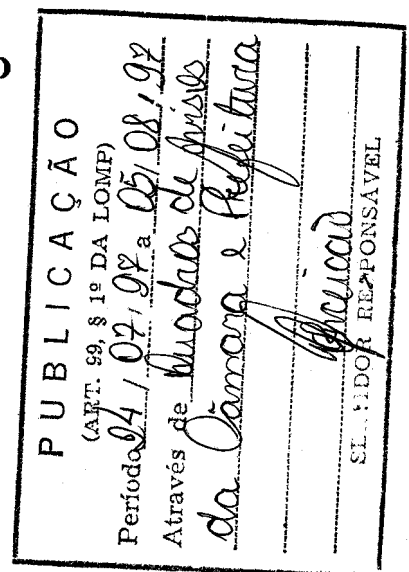 PUBLICAÇÃO
(ART. 99, § 1º DA LOMP)
Período 24 / 07 / 97 a 05 / 08 / 97
Através de Quadros de Avisos
da Câmara e Prefeitura
SERVIDOR RESPONSÁVEL